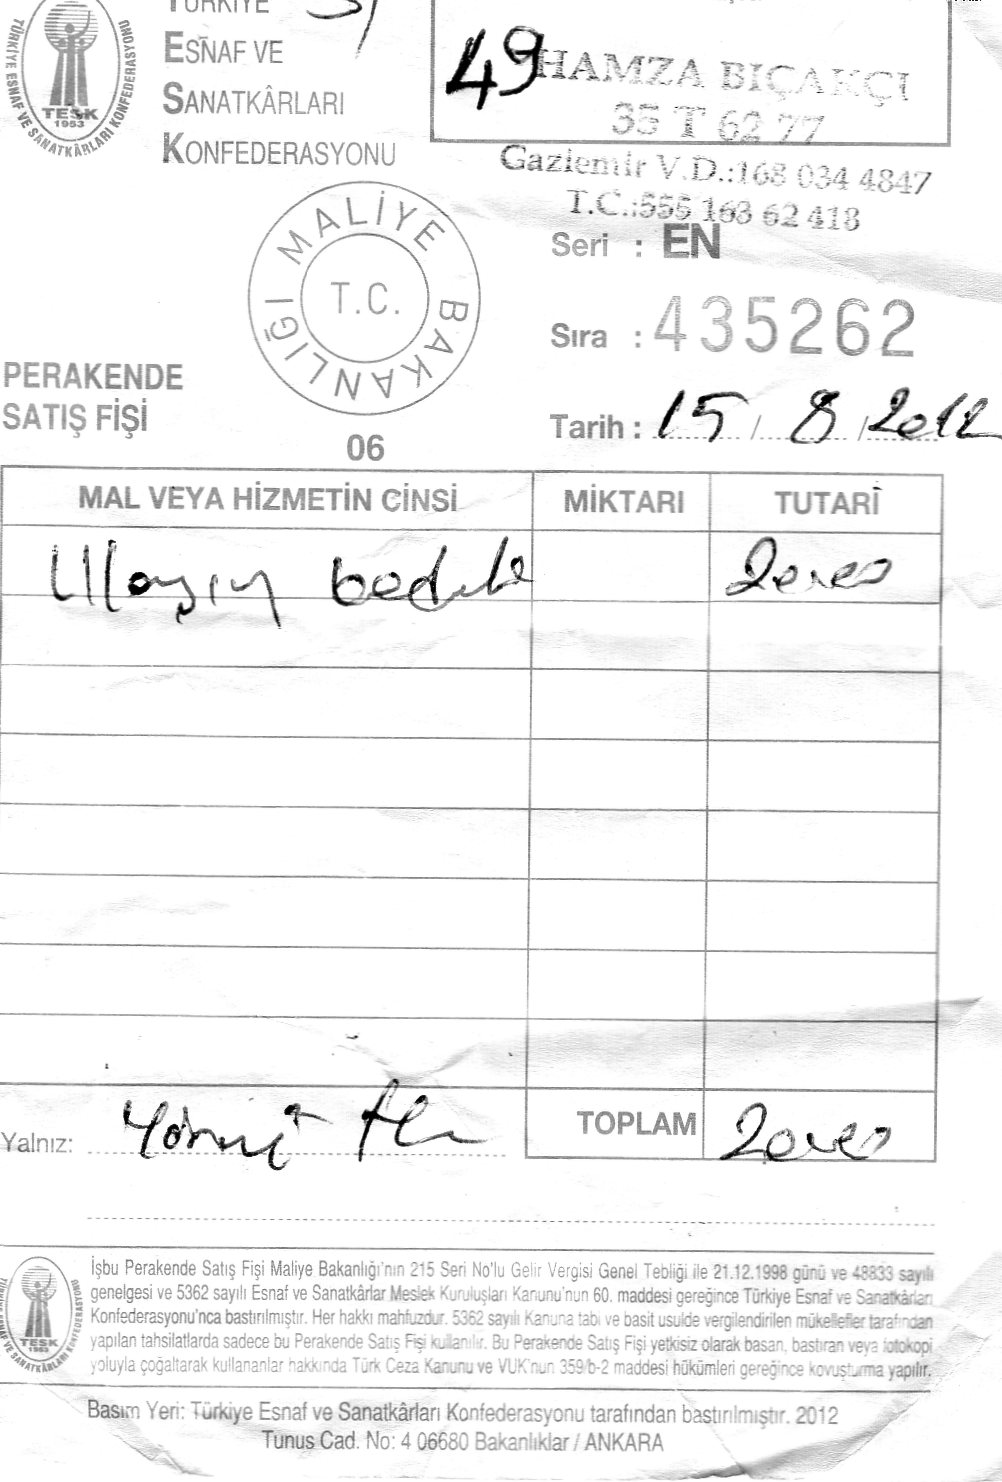 TÜRKİYE
ESNAF VE
SANATKÂRLARI
KONFEDERASYONU
TÜRKİYE ESNAF VE SANATKÂRLARI KONFEDERASYONU
TESK
1953
49
HAMZA BIÇAKÇI
35 T 62 77
Gaziemir V.D.:168 034 4847
T.C.:555 163 62 418
MALİYE BAKANLIĞI
T.C.
Seri : EN
Sıra : 435262
PERAKENDE
SATIŞ FİŞİ
06
Tarih : 15 / 8 / 2012
MAL VEYA HİZMETİN CİNSİ MİKTARI TUTARI
Ulaşım bedeli
Yalnız:
TOPLAM
İşbu Perakende Satış Fişi Maliye Bakanlığı'nın 215 Seri No'lu Gelir Vergisi Genel Tebliği ile 21.12.1998 günü ve 48833 sayılı
genelgesi ve 5362 sayılı Esnaf ve Sanatkârlar Meslek Kuruluşları Kanunu'nun 60. maddesi gereğince Türkiye Esnaf ve Sanatkârları
Konfederasyonu'nca bastırılmıştır. Her hakkı mahfuzdur. 5362 sayılı Kanuna tabi ve basit usulde vergilendirilen mükellefler tarafından
yapılan tahsilatlarda sadece bu Perakende Satış Fişi kullanılır. Bu Perakende Satış Fişi yetkisiz olarak basan, bastıran veya fotokopi
yoluyla çoğaltarak kullananlar hakkında Türk Ceza Kanunu ve VUK'nun 359/b-2 maddesi hükümleri gereğince kovuşturma yapılır.
TESK
1953
Basım Yeri: Türkiye Esnaf ve Sanatkârları Konfederasyonu tarafından bastırılmıştır. 2012
Tunus Cad. No: 4 06680 Bakanlıklar / ANKARA